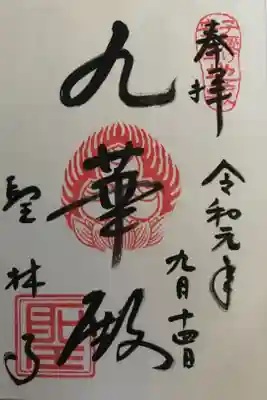 奉拝
令和元年
九月十四日
九華殿
聖林寺